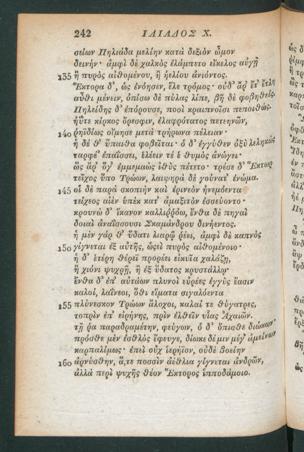 242 ΙΛΙΑΔΟΣ Χ.
σείων Πηλιάδα μελίην κατὰ δεξιὸν ὦμον
δεινήν· ἀμφὶ δὲ χαλκὸς ἐλάμπετο εἴκελος αὐγῇ
135 ἢ πυρὸς αἰθομένου, ἢ ἠελίου ἀνιόντος.
Ἕκτορα δ', ὡς ἐνόησεν, ἕλε τρόμος· οὐδ' ἄρ' ἔτ' ἔτλη
αὖθι μένειν, ὀπίσω δὲ πύλας λίπε, βῆ δὲ φοβηθείς.
Πηλείδης δ' ἐπόρουσε, ποσὶ κραιπνοῖσι πεποιθώς.
ἠΰτε κίρκος ὄρεσφιν, ἐλαφρότατος πετεηνῶν,
140 ῥηϊδίως οἴμησε μετὰ τρήρωνα πέλειαν·
ἡ δέ θ' ὕπαιθα φοβεῖται· ὁ δ' ἐγγύθεν ὀξὺ λεληκὼς
ταρφέ' ἐπαΐσσει, ἑλέειν τέ ἑ θυμὸς ἀνώγει·
ὣς ἄρ' ὅγ' ἐμμεμαὼς ἰθὺς πέτετο· τρέσε δ' Ἕκτωρ
τεῖχος ὕπο Τρώων, λαιψηρὰ δὲ γούνατ' ἐνώμα.
145 οἱ δὲ παρὰ σκοπιὴν καὶ ἐρινεὸν ἠνεμόεντα
τείχεος αἰὲν ὑπὲκ κατ' ἀμαξιτὸν ἐσσεύοντο·
κρουνὼ δ' ἵκανον καλλιῤῥόω, ἔνθα δὲ πηγαὶ
δοιαὶ ἀναΐσσουσι Σκαμάνδρου δινήεντος.
ἡ μὲν γάρ θ' ὕδατι λιαρῷ ῥέει, ἀμφὶ δὲ καπνὸς
150 γίγνεται ἐξ αὐτῆς, ὡσεὶ πυρὸς αἰθομένοιο·
ἡ δ' ἑτέρη θέρεϊ προρέει εἰκυῖα χαλάζῃ,
ἢ χιόνι ψυχρῇ, ἢ ἐξ ὕδατος κρυστάλλῳ·
ἔνθα δ' ἐπ' αὐτάων πλυνοὶ εὐρέες ἐγγὺς ἔασιν
καλοί, λαΐνεοι, ὅθι εἵματα σιγαλόεντα
155 πλύνεσκον Τρώων ἄλοχοι, καλαί τε θύγατρες,
τοπρὶν ἐπ' εἰρήνης, πρὶν ἐλθεῖν υἷας Ἀχαιῶν.
τῇ ῥα παραδραμέτην, φεύγων, ὁ δ' ὄπισθε διώκων·
πρόσθε μὲν ἐσθλὸς ἔφευγε, δίωκε δέ μιν μέγ' ἀμείνων
καρπαλίμως· ἐπεὶ οὐχ ἱερήϊον, οὐδὲ βοείην
160 ἀρνύσθην, ἅ,τε ποσσὶν ἀέθλια γίγνεται ἀνδρῶν,
ἀλλὰ περὶ ψυχῆς θέον Ἕκτορος ἱπποδάμοιο.